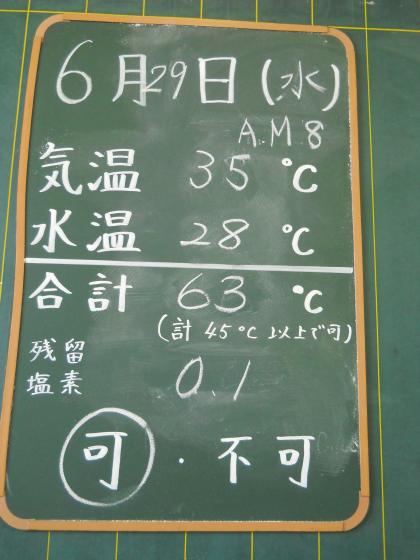 6月29日(水)
A.M 8
気温 35 ℃
水温 28 ℃
合計 63 ℃
(計 45℃ 以上で可)
残留
塩素 0.1
可・不可